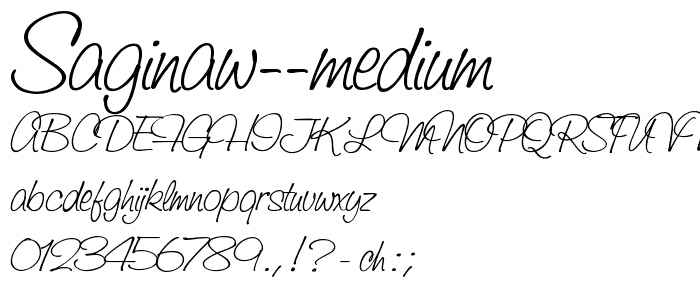 Saginaw--medium
ABCDEFGHIJKLMNOPQRSTUV
abcdefghijklmnopqrstuvwxyz
0123456789.,!?-ch:;